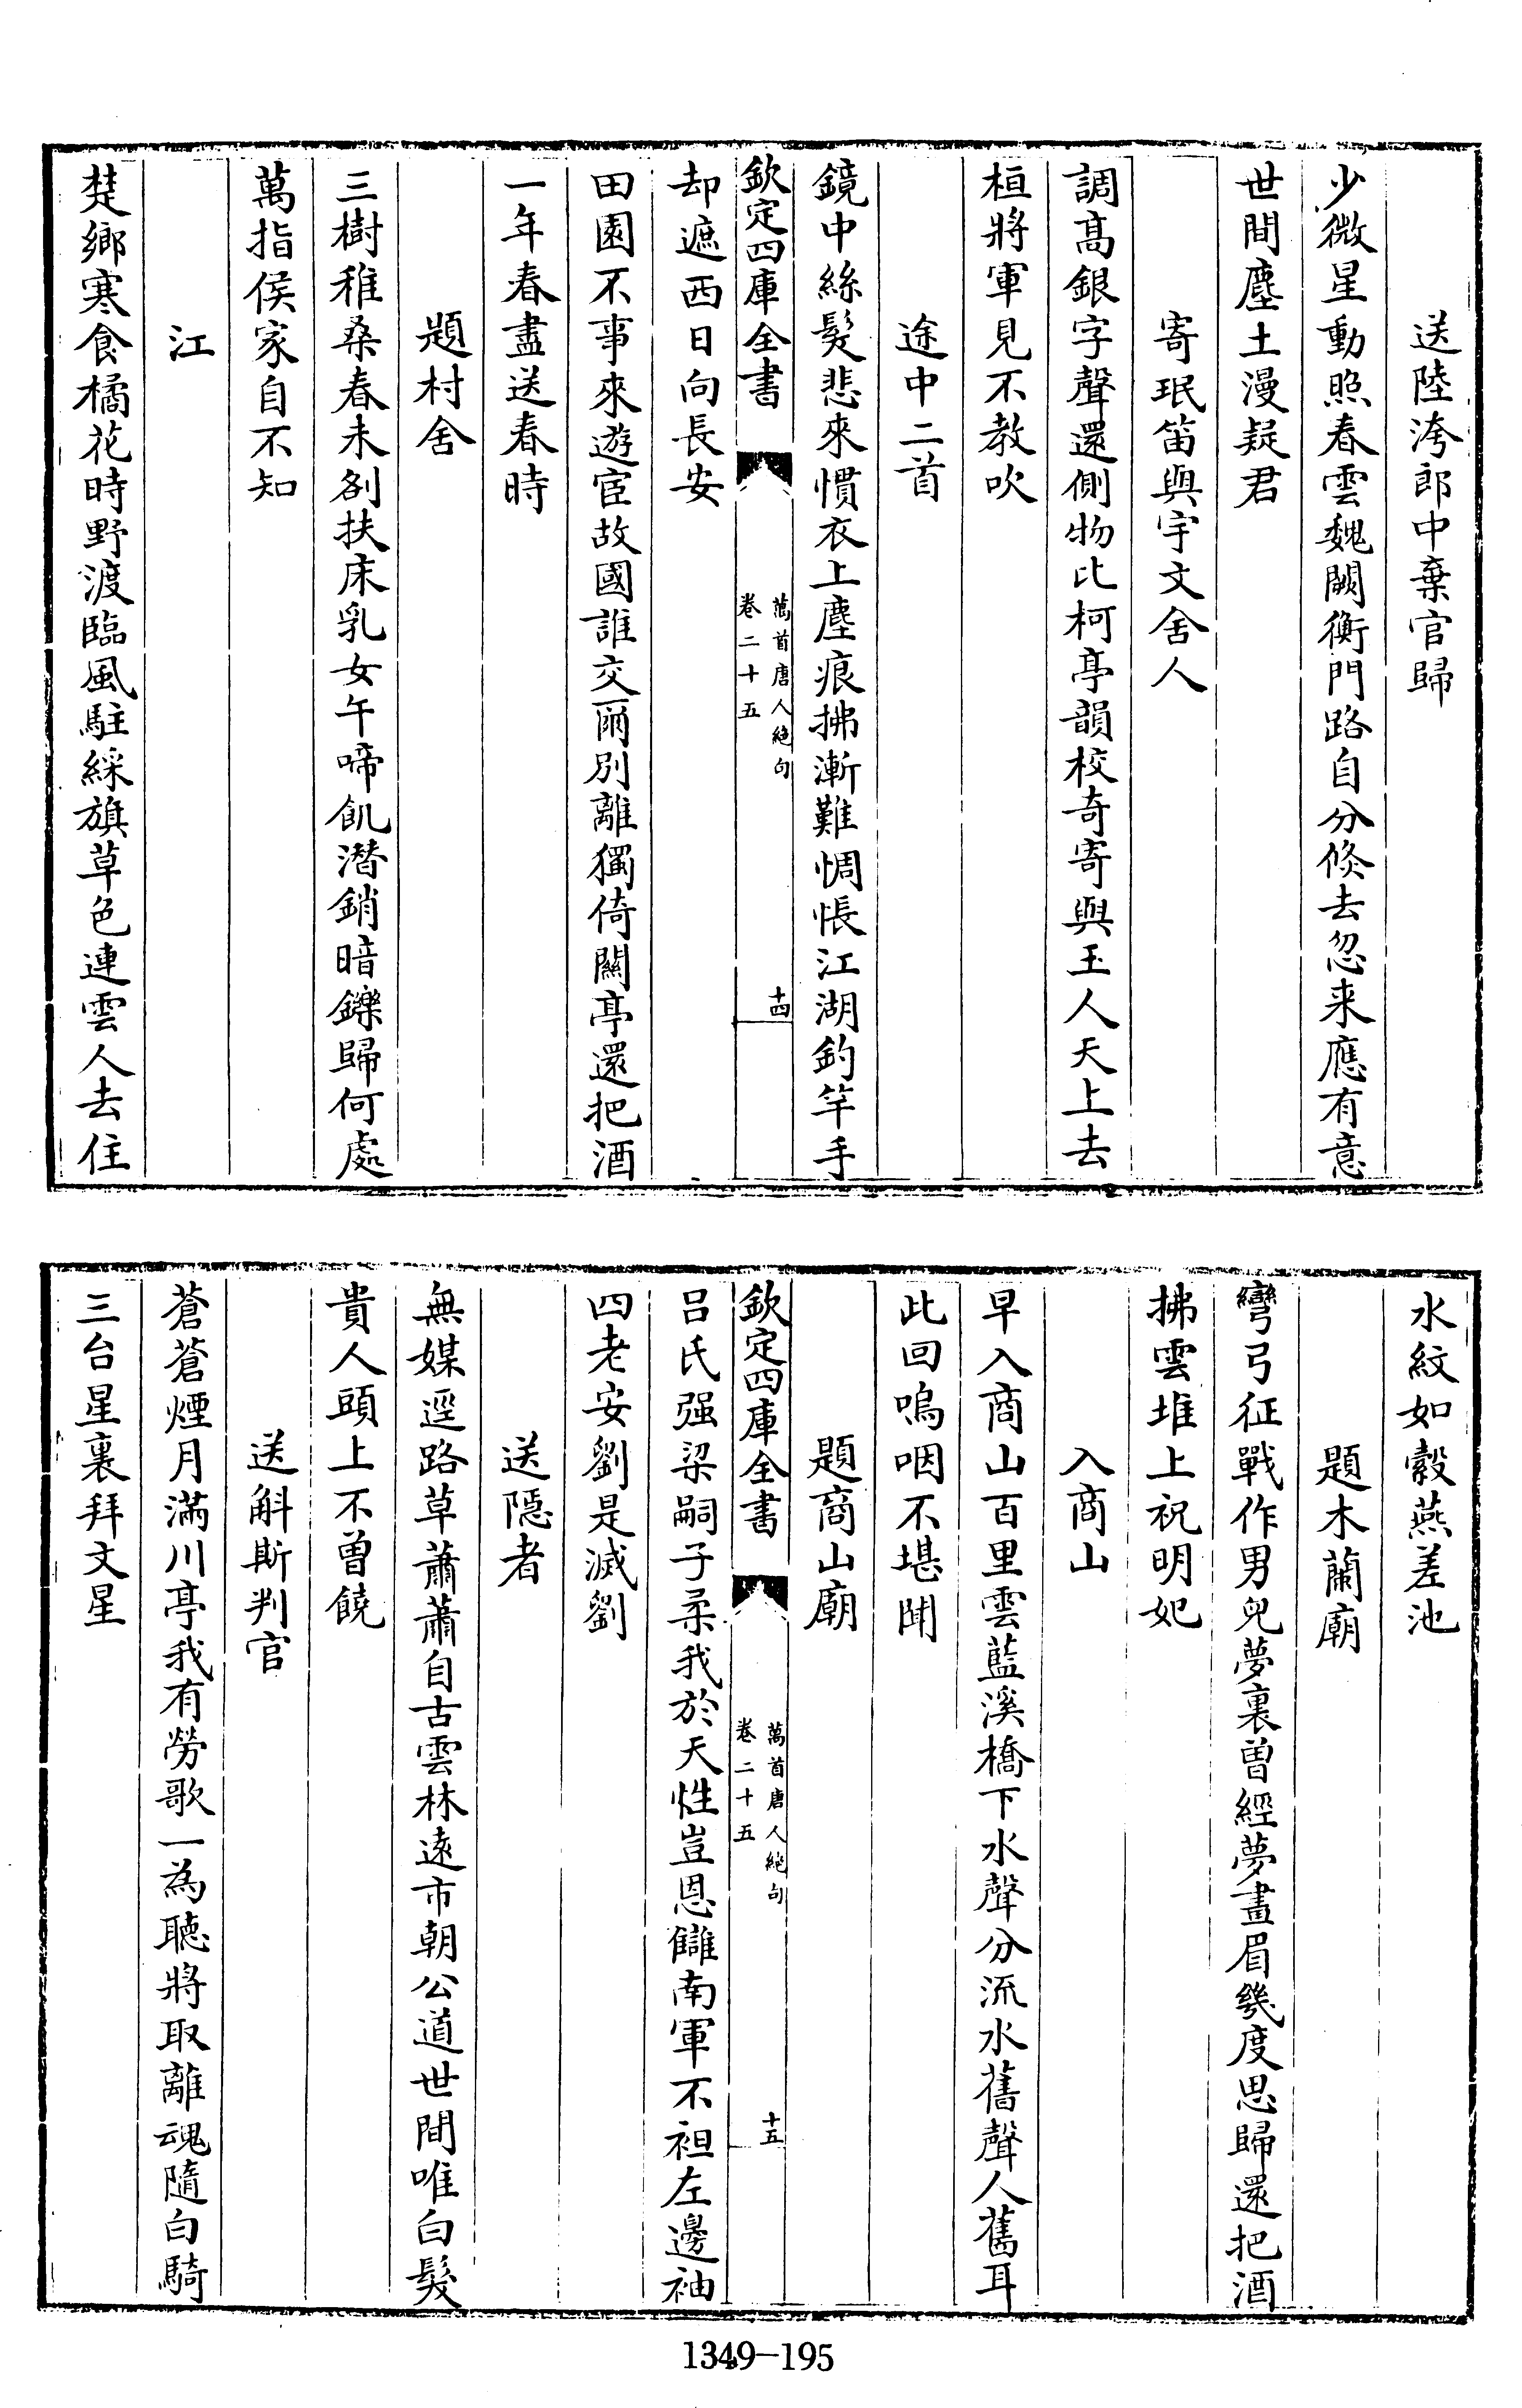 送陸洿郎中棄官歸
少微星動照春雲魏闕衡門路自分倏去忽来應有意
世間塵土漫疑君
寄珉笛與宇文舍人
調髙銀字聲還側物比柯亭韻校奇寄與玉人天上去
桓將軍見不教吹
途中二首
鏡中絲髮悲來慣衣上塵痕拂漸難惆悵江湖釣竿手
欽定四庫全書
萬首唐人絶句
卷二十五
十四
却遮西日向長安
田園不事來遊宦故國誰交爾別離獨倚關亭還把酒
一年春盡送春時
題村舍
三樹稚桑春未到扶床乳女午啼飢潜銷暗鑠歸何處
萬指侯家自不知
江
楚鄉寒食橘花時野渡臨風駐綵旗草色連雲人去住
水紋如縠燕差池
題木蘭廟
彎弓征戰作男兒夢裏曽經夢畫眉幾度思歸還把酒
拂雲堆上祝明妃
入商山
早入商山百里雲藍溪橋下水聲分流水舊聲人舊耳
此回嗚咽不堪聞
題商山廟
欽定四庫全書
萬首唐人絶句
卷二十五
十五
吕氏强梁嗣子柔我於天性豈恩讎南軍不袒左邊袖
四老安劉是滅劉
送隠者
無媒逕路草蕭蕭自古雲林逺市朝公道世間唯白髮
貴人頭上不曽饒
送斛斯判官
蒼蒼煙月滿川亭我有勞歌一為聽將取離魂隨白騎
三台星裏拜文星
1349-195